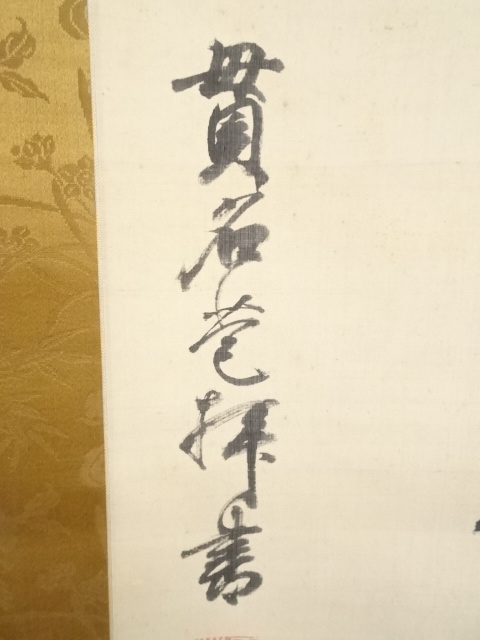 貫名苞拝書